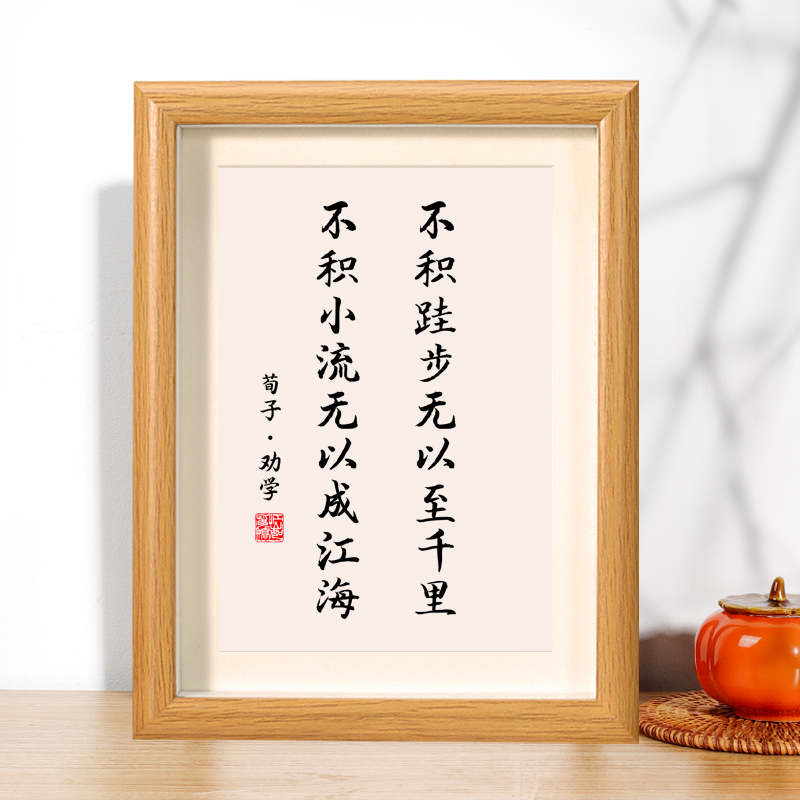 不积跬步无以至千里
不积小流无以成江海
荀子·劝学